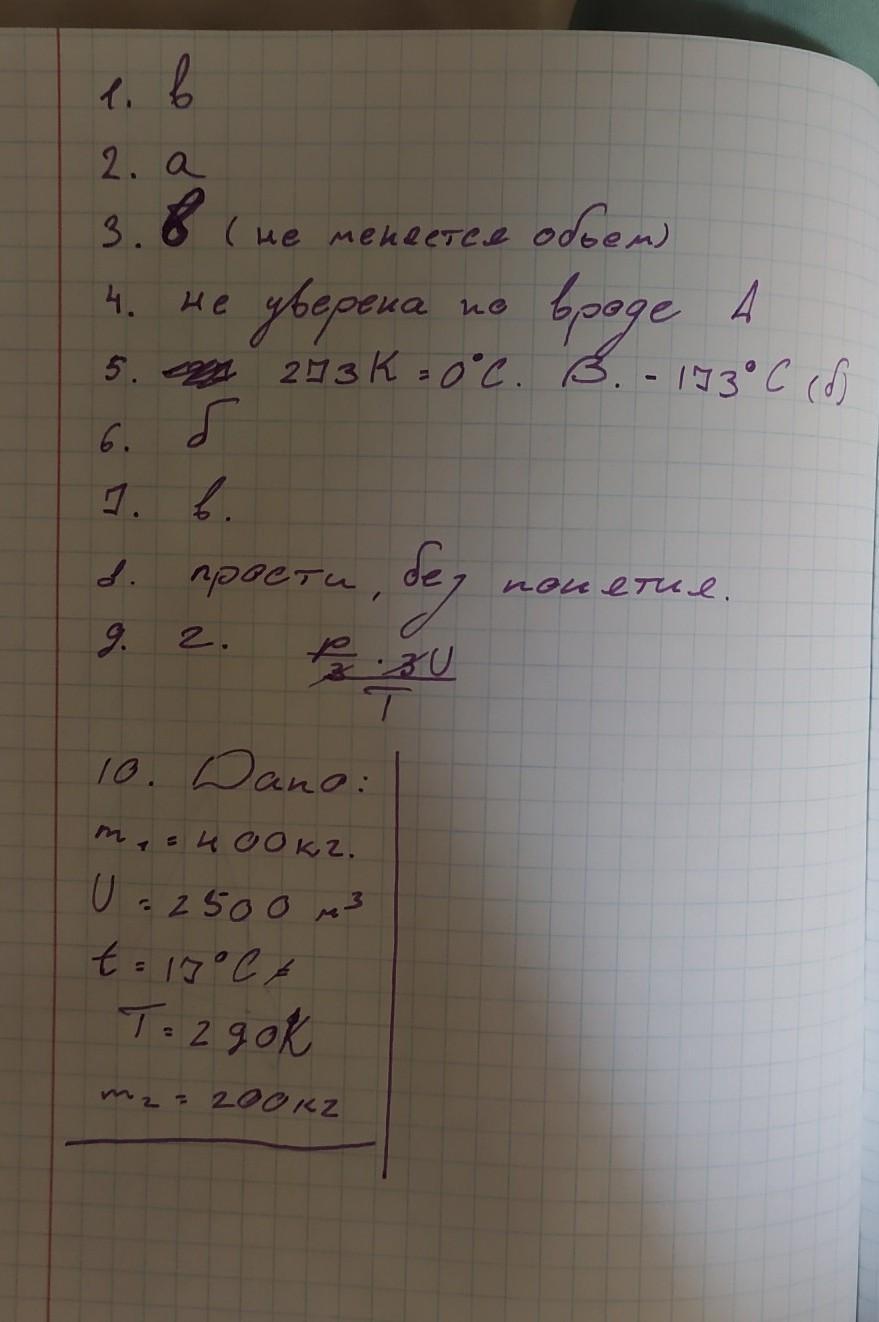 1. в
2. а
3. в (не меняется обьем)
4. не уверена но вроде Д
5. 273К = 0°С. В. - 173°С (б)
6. б
7. в.
8. прости, без понятия.
9. г. p/3 · 3U / T
10. Дано:
m₁ = 400кг.
U = 2500 м³
t = 17°С
T = 290К
m₂ = 200кг